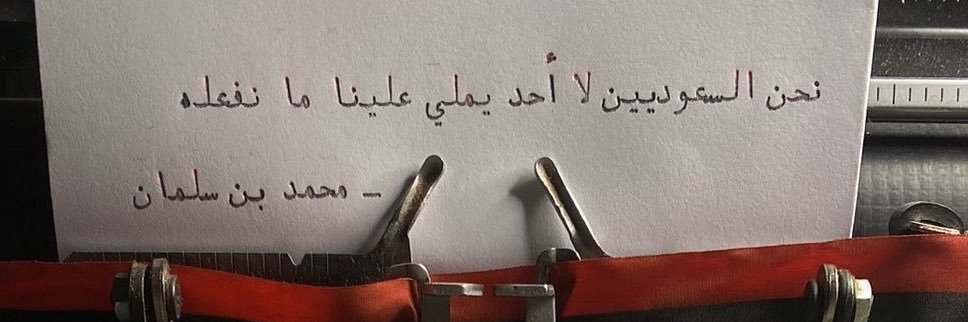 نحن السعوديين لا أحد يملي علينا ما نفعله
- محمد بن سلمان